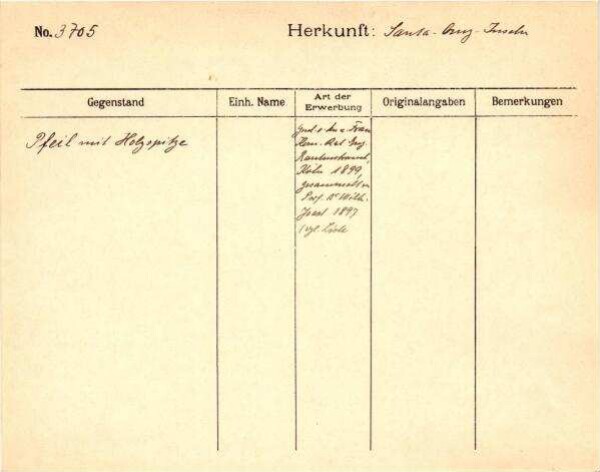 No. 3705
Herkunft: Santa-Cruz-Inseln
Gegenstand
Einh. Name
Art der
Erwerbung
Originalangaben
Bemerkungen
Pfeil mit Holzspitze
Frau
Kom. Rat Eug.
Rautenstrauch,
Köln 1899,
gesammelt v.
Prof. Dr Wilh.
Joest 1897
vgl. Liste